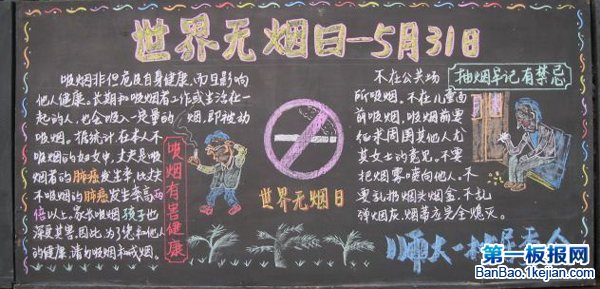 世界无烟日—5月31日
吸烟非但危及自身健康,而且影响
他人健康。长期和吸烟者工作或生活在一
起的人,也会吸入一定量的烟,即被动
吸烟。据统计在本人不
吸烟的妇女中,丈夫是吸
烟者的肺癌发生率,比丈夫
不吸烟的肺癌发生率高两
倍以上。家长吸烟孩子也
深受其害。因此,为了您和他人
的健康,请勿吸烟和戒烟。
吸烟有害健康
世界无烟日
抽烟牢记有禁忌
不在公共场
所吸烟。不在儿童面
前吸烟。吸烟前要
征求周围其他人尤
其女士的意见。不要
把烟雾喷向他人。不
要乱扔烟头烟盒。不乱
弹烟灰烟蒂应完全熄灭。
师大一村居委会
第一板报网
BanBao.1kejian.com